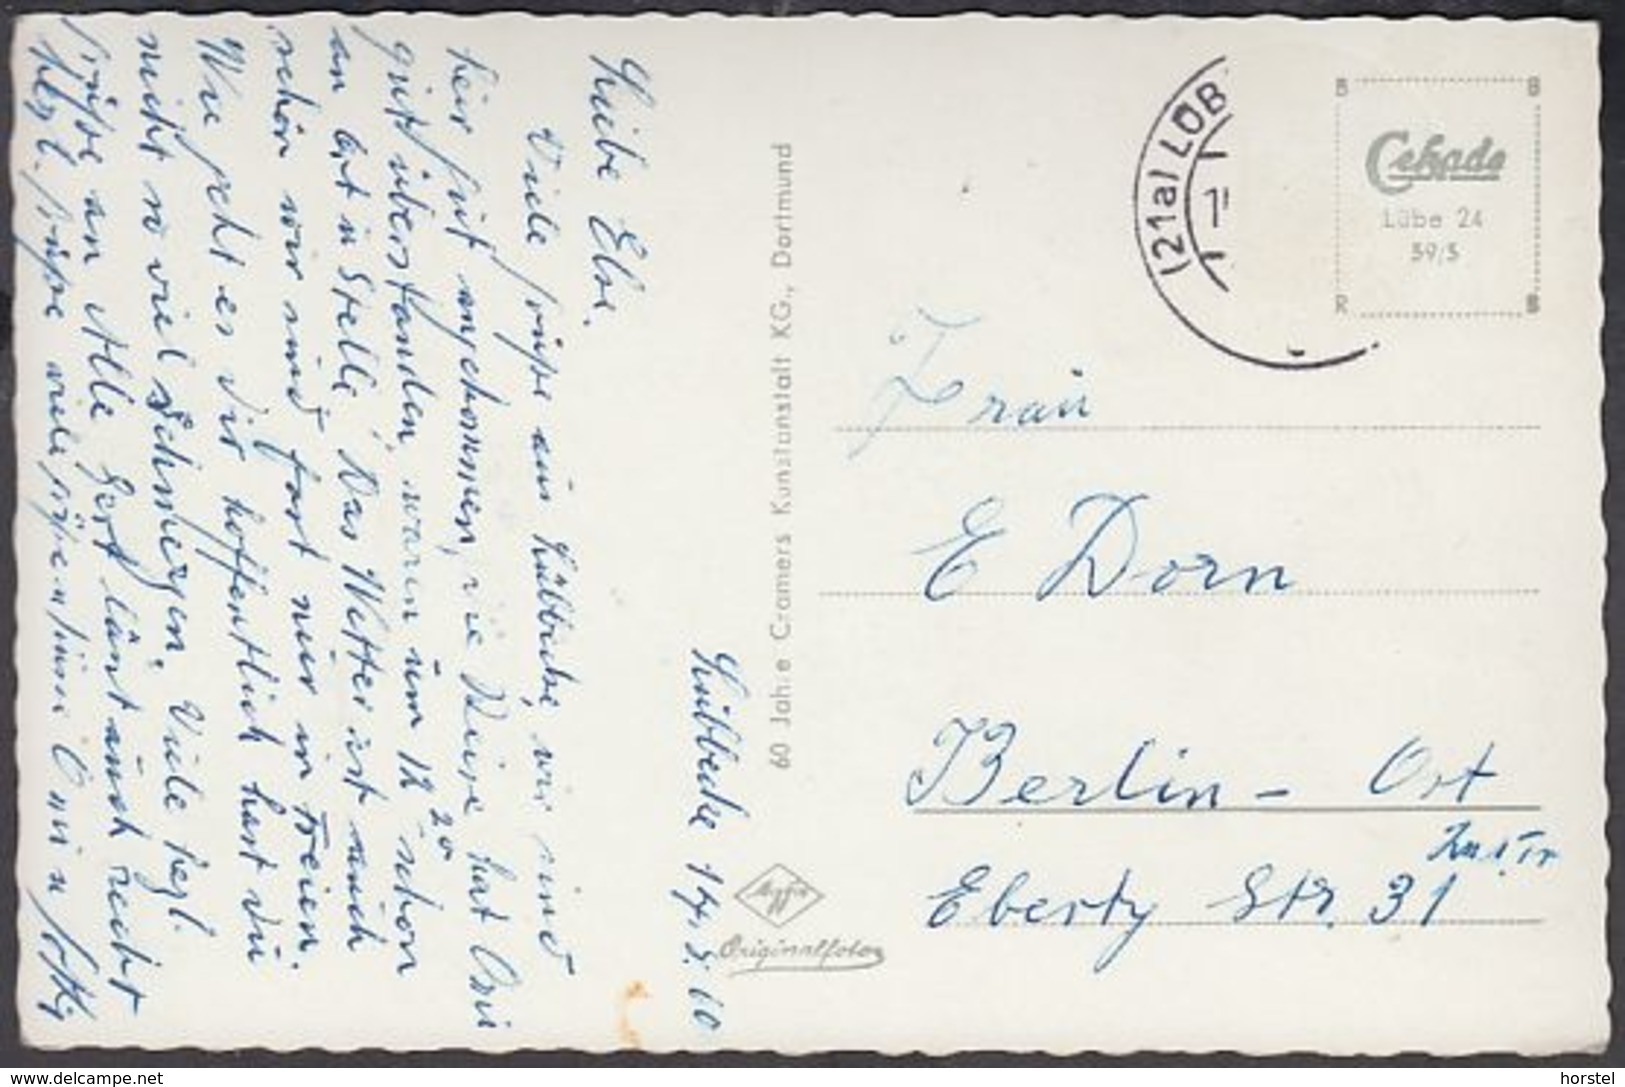 Lübbecke 14.8.60
Liebe Else.
Viele Grüße aus Lübbecke, wir sind
hier gut angekommen, die Reise hat Omi
gut überstanden, waren um 12 20 schon
an Ort u Stelle. Das Wetter ist auch
schön wir sind fast nur im Freien.
Wie geht es Dir hoffentlich hast Du
nicht so viel Schmerzen. Viele hezl.
Grüße an Alle Gert läßt auch recht
hezl. grüßen viele Grüße Omi u
60 Jahre Cramers Kunstanstalt KG., Dortmund
Agfa
Originalfoto
(21a) LÜB
B B
Cekade
Lübe 24
59/5
R B
Frau
E Dorn
Berlin - Ost
Eberty Str. 31
horstel
©www.delcampe.net